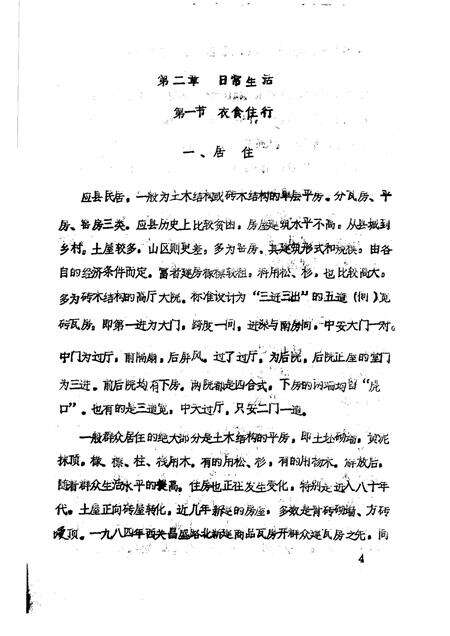 第二章 日常生活
第一节 衣食住行
一、居 住
应县民居，一般为土木结构或砖木结构的单层平房。分瓦房、平
房、窑房三类。应县历史上比较贫困，房屋建筑水平不高，从县城到
乡村，土屋较多，山区则更差，多为窑房。其建筑形式和规模，由各
自的经济条件而定。富者建房椽檩较粗，料用松、杉，也比较高大。
多为砖木结构的高厅大院。标准设计为“三进三出”的五道（间）宽
砖瓦房，即第一进为大门，跨度一间，进深与南房同，中安大门一对。
中门为过厅，前隔扇，后屏风。过了过厅，为后院，后院正屋的堂门
为三进。前后院均有下房。两院都是四合式，下房的 “虎
口”。也有的是三道宽，中大过厅，只安二门一道。
一般群众居住的绝大部分是土木结构的平房，即土坯砌墙，黄泥
抹顶，椽、檩、柱、栈用木。有的用松、杉，有的用杨木。解放后，
随着群众生活水平的提高，住房也正在发生变化，特别是进入八十年
代。土屋正向砖屋转化，近几年新建的房屋，多数是青砖砌墙、方砖
顶。一九八四年西关昌盛路北新建商品瓦房开群众建瓦房之先，同
4